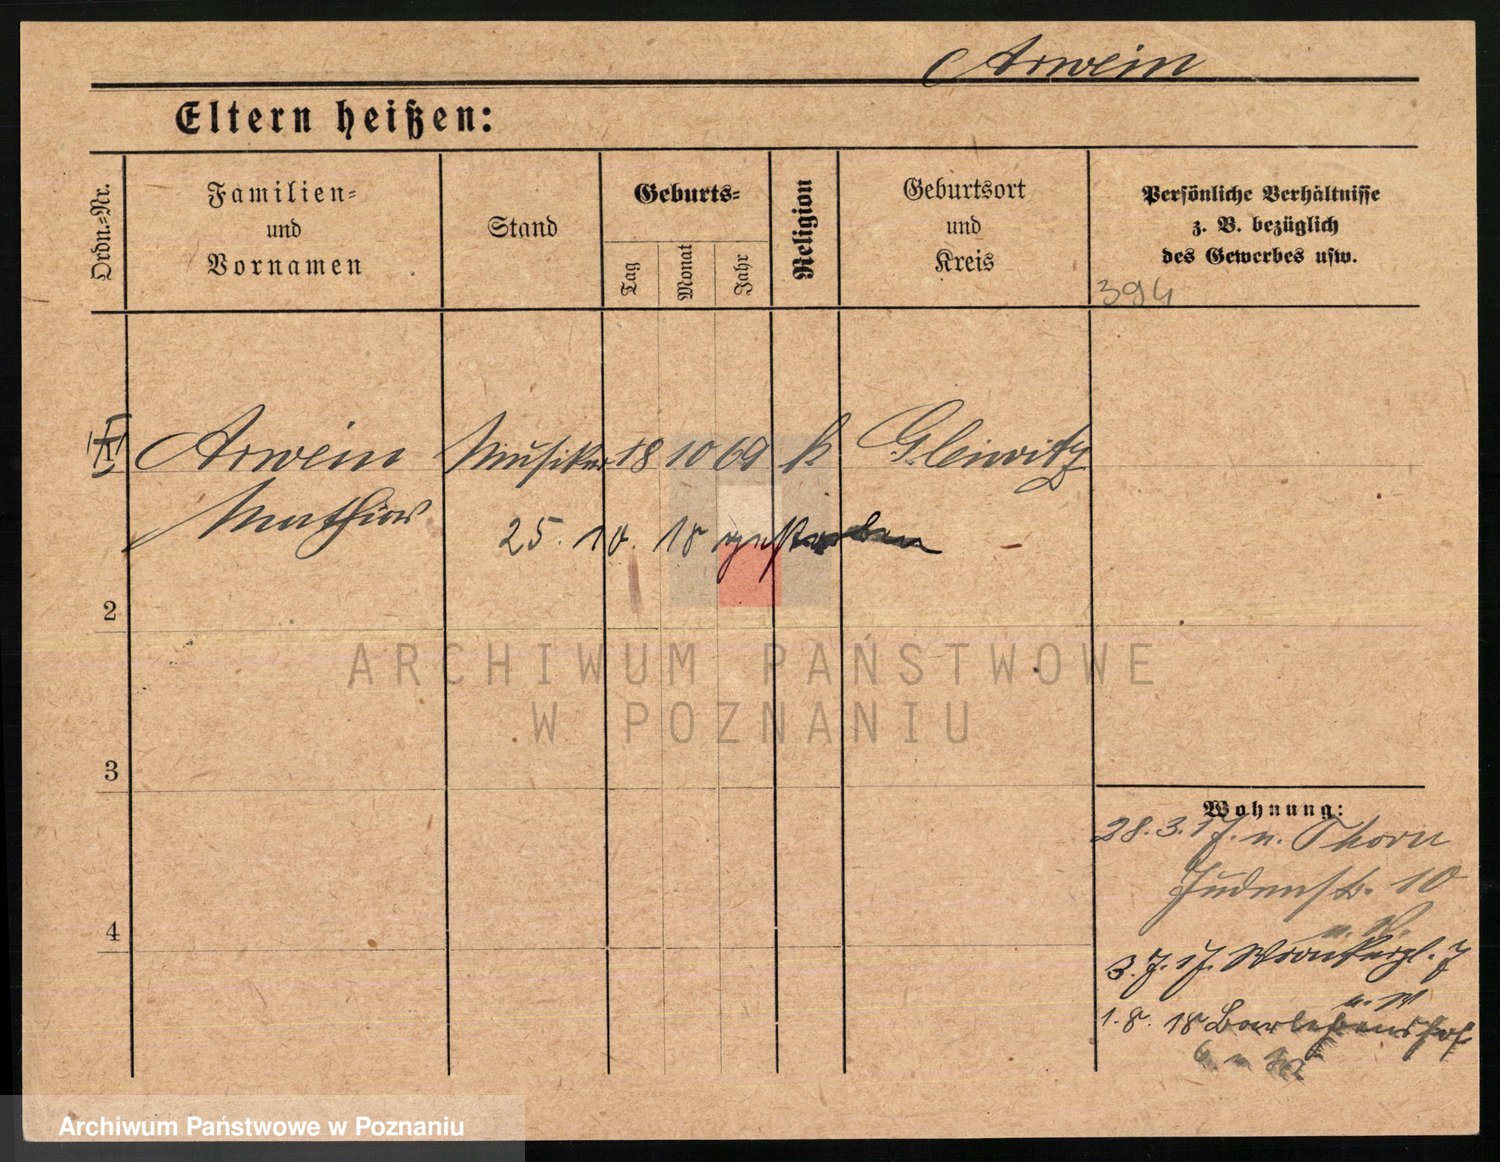 Arwein
Eltern heißen:
Ordn.-Nr.
Familien-
und
Vornamen
Stand
Geburts-
Tag
Monat
Jahr
Religion
Geburtsort
und
Kreis
Persönliche Verhältnisse
z. B. bezüglich
des Gewerbes usw.
394
Arwein Musiker 18 10 69 k Gleiwitz
Mathias
25. 10. 18 gestorben
2
3
4
ARCHIWUM PAŃSTWOWE
W POZNANIU
Wohnung:
28.3.17. n. Thorn
Judenstr. 10
3.7.17. Wronkerpl. 7
1.8.18 Barlebenshof
Archiwum Państwowe w Poznaniu